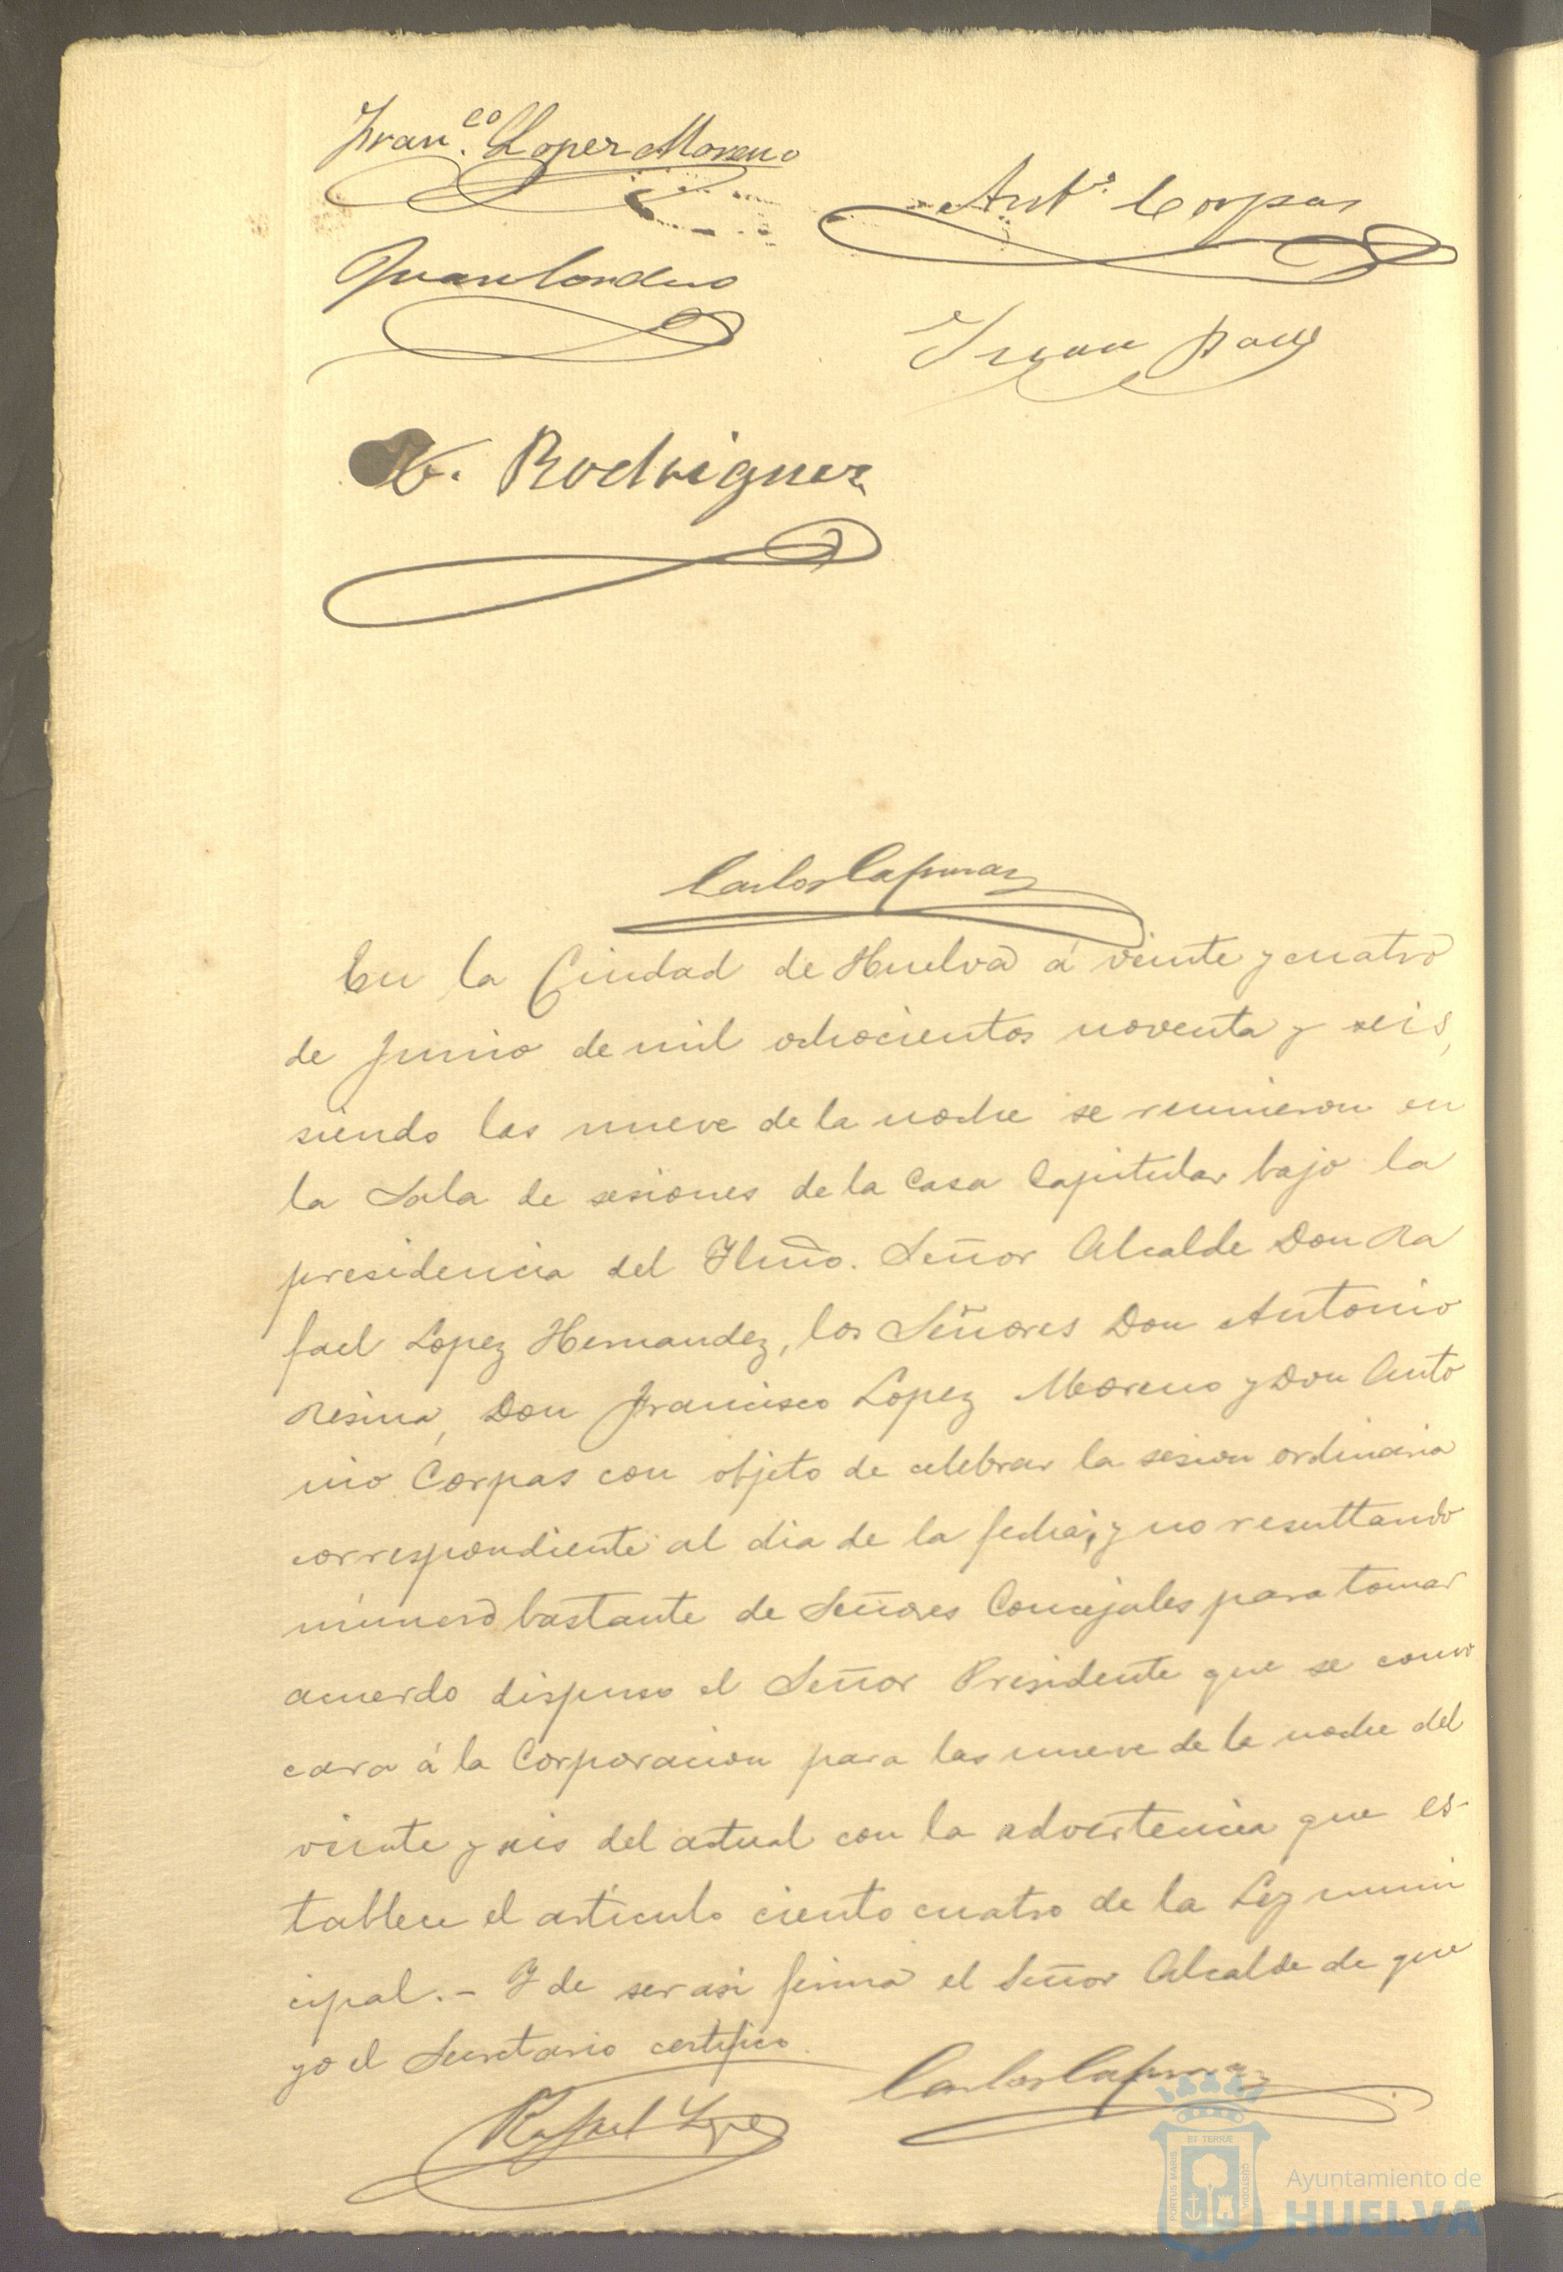 Fran.co Lopez Moreno
Ant.o Corpas
Juan Cordero
Juan
V. Rodriguez
Carlos
En la Ciudad de Huelva á veinte y cuatro
de Junio de mil ochocientos noventa y seis,
siendo las nueve de la noche se reunieron en
la Sala de sesiones de la Casa Capitular bajo la
presidencia del Iltmo. Señor Alcalde Don Ra
fael Lopez Hernandez, los Señores Don Antonio
Resina, Don Francisco Lopez Moreno y Don Anto
nio Corpas con objeto de celebrar la sesion ordinaria
correspondiente al dia de la fecha, y no resultando
número bastante de Señores Concejales para tomar
acuerdo dispuso el Señor Presidente que se convo
cara á la Corporacion para las nueve de la noche del
veinte y seis del actual con la advertencia que es-
tablece el artículo ciento cuatro de la Ley muni
cipal.- Y de ser asi firma el Señor Alcalde de que
yo el Secretario certifico.
Rafael Lopez
Carlos
PORTUS MARIS ET TERRÆ CUSTODIA
Ayuntamiento de
HUELVA